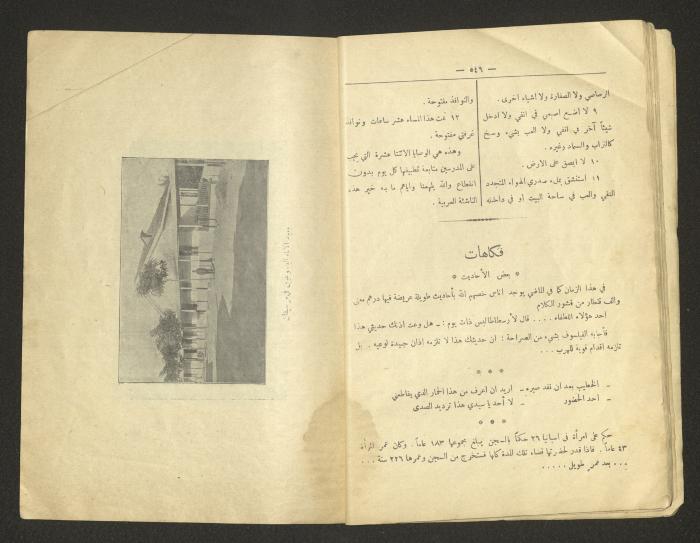 — ٥٤٦ —
الرصاصي ولا الصفارة ولا اشياء اخرى .
٩ لا اضع اصبعي في انفي ولا ادخل
شيئاً آخر في انفي ولا العب بشيء وسخ
كالتراب والسماد وغيره .
١٠ لا ابصق على الارض .
١١ استنشق بملء صدري الهواء المتجدد
النقي والعب في ساحة البيت او في داخله
والنوافذ مفتوحة .
١٢ نمت هذا المساء عشر ساعات ونوافذ
غرفتي مفتوحة .
وهذه هي الوصايا الاثنتا عشرة التي يجب
على المدرسين متابعة تطبيقها كل يوم بدون
انقطاع والله يلهمنا واياهم ما به خير هذه
الناشئة العربية .
فكاهات
* بعض الأحاديث *
في هذا الزمان كما في الماضي يوجد اناس خصهم الله بأحاديث طويلة عريضة فيها درهم معنى
والف قنطار من قشور الكلام
احد هؤلاء الثقلاء .... قال لأرسطاطاليس ذات يوم : ـ هل وعت اذنك حديثي هذا
فأجابه الفيلسوف بشيء من الصراحة : ان حديثك هذا لا تلزمه اذان جيدة لوعيه . بل
تلزمه اقدام قوية للهرب ...
* * *
ـ الخطيب بعد ان نفد صبره ـ اريد ان اعرف من هذا الحمار الذي يقاطعني
ـ احد الحضور ـ لا أحد يا سيدي هذا ترديد الصدى
* * *
حكم على امرأة في اسبانيا ٢٦ حكماً بالسجن يبلغ مجموعها ١٨٣ عاماً . وكان عمر المرأة
٤٣ عاماً . فاذا قدر لحضرتها قضاء تلك المدة كلها فستخرج من السجن وعمرها ٢٢٦ سنة ...
... بعد عمر طويل .....